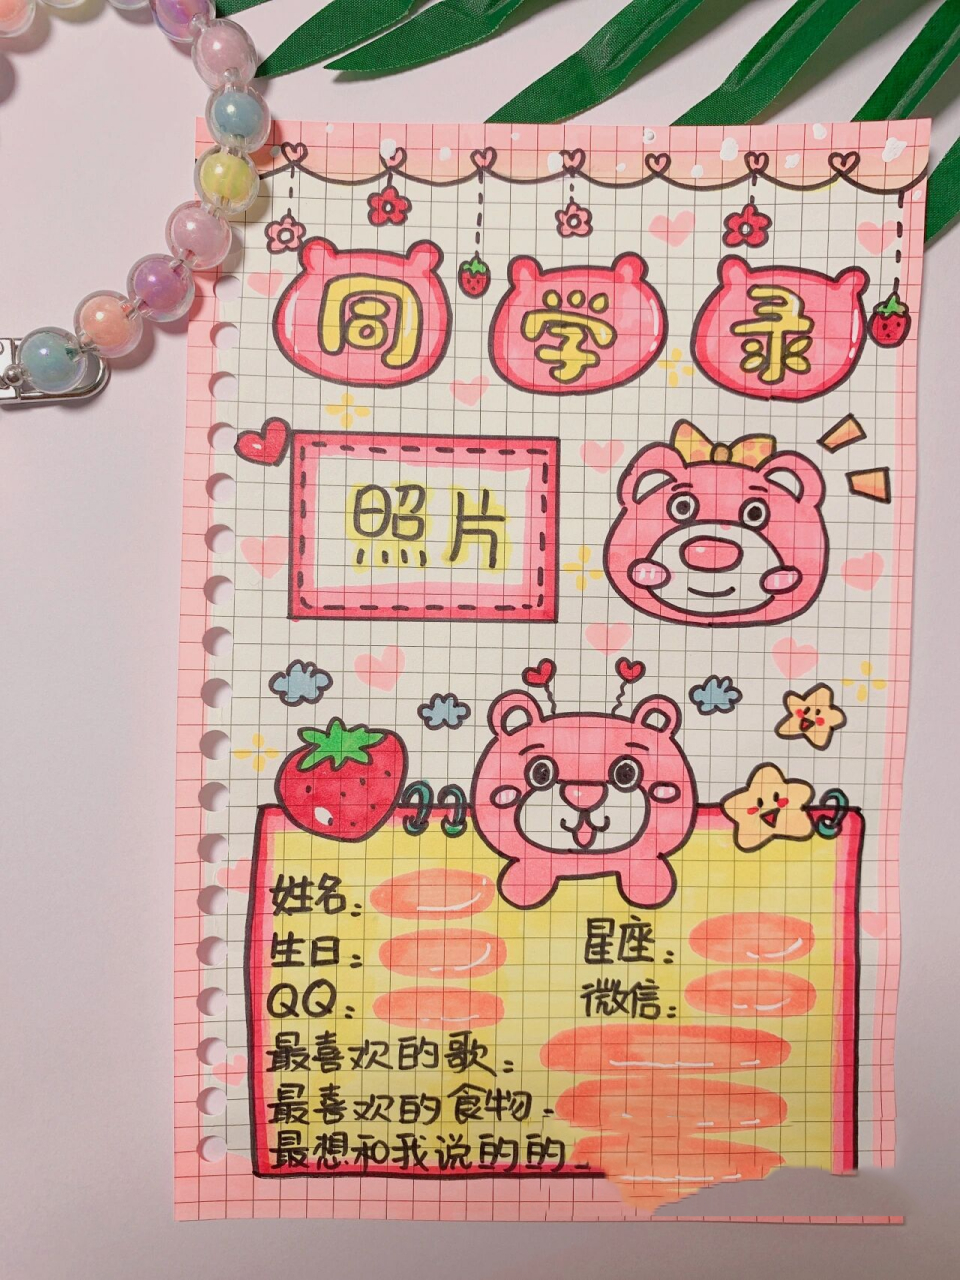 同学录
照片
姓名：
生日：
星座：
QQ：
微信：
最喜欢的歌：
最喜欢的食物：
最想和我说的的